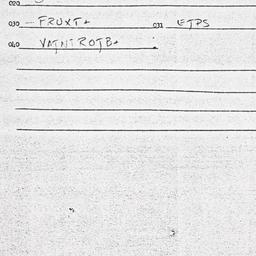 020
030 – FRUXT+ 031 ETPS
040 VATNT ROTB+